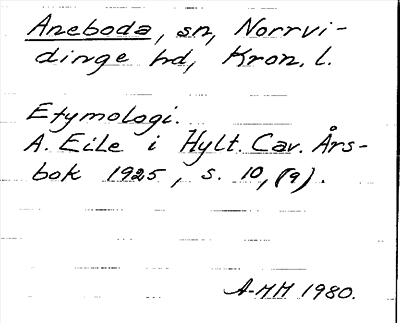 Aneboda, sn, Norrvi-
dinge hd, Kron. l.
Etymologi.
A. Eile i Hylt. Cav. Års-
bok 1925, s. 10, (19).
A-MM 1980.